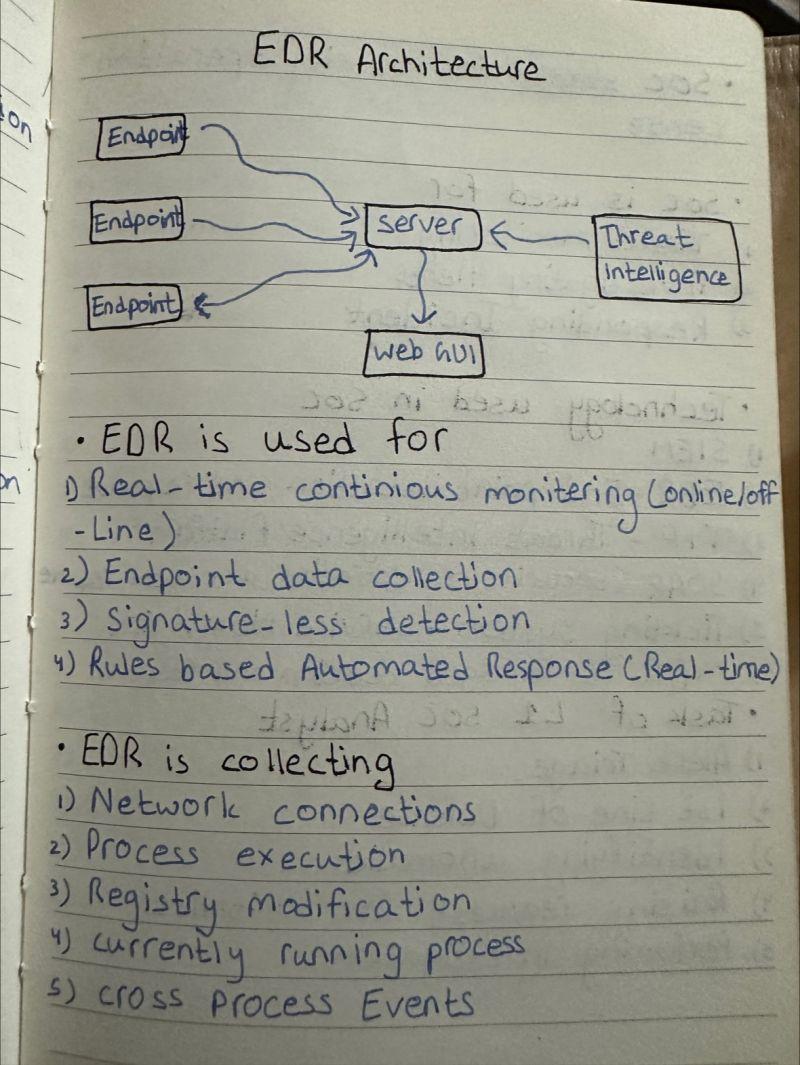 EDR Architecture
Endpoint
Endpoint
Endpoint
server
Threat
intelligence
web GUI
• EDR is used for
1) Real-time continious monitering (online/off
-Line)
2) Endpoint data collection
3) Signature-less detection
4) Rules based Automated Response (Real-time)
• EDR is collecting
1) Network connections
2) Process execution
3) Registry modification
4) currently running process
5) cross process Events